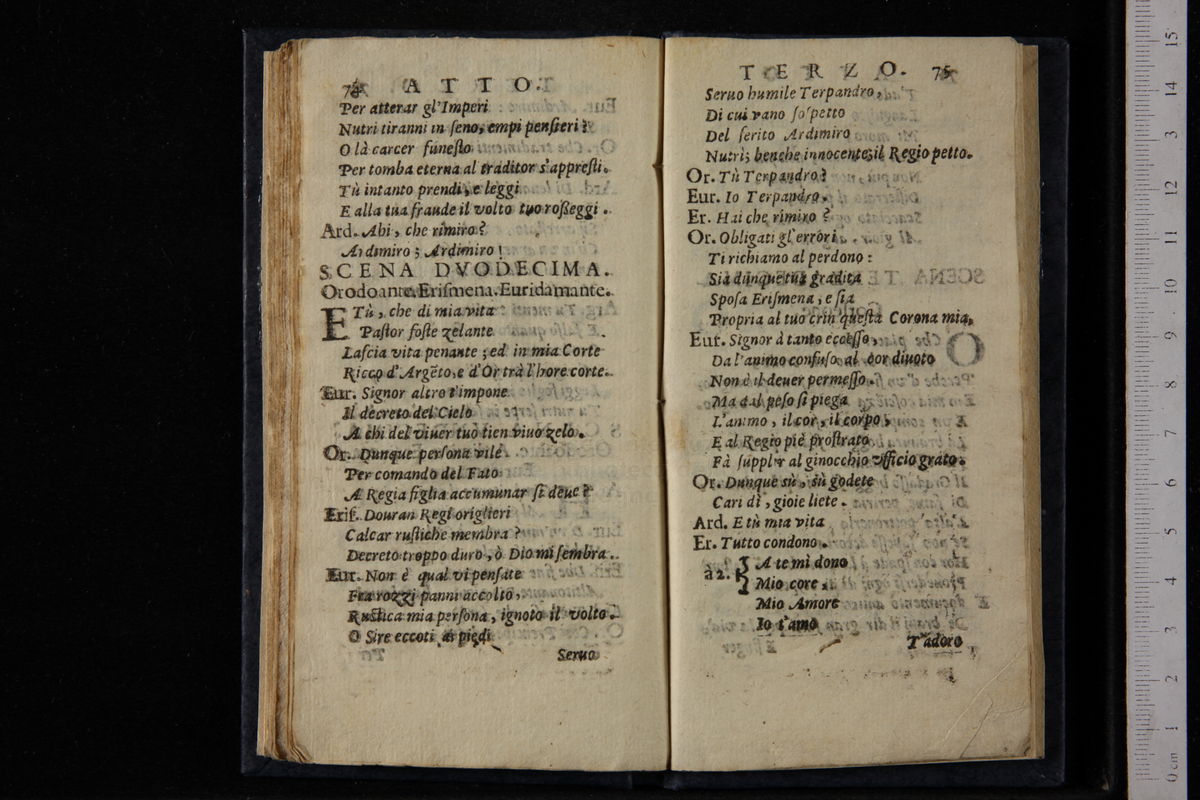 74 ATTO.
Per atterar gl'Imperi
Nutri tiranni in seno, empi pensieri?
O là carcer funesto
Per tomba eterna al traditor s'appresti.
Tù intanto prendi, e leggi
E alla tua fraude il volto tuo roßeggi.
Ard. Ahi, che rimiro?
Ardimiro; Ardimiro!
SCENA DVODECIMA.
Orodoante. Erismena. Euridamante.
E Tù, che di mia vita
Pastor foste zelante
Lascia vita penante; ed in mia Corte
Ricco d'Argẽto, e d'Or trà l'hore corte.
Eur. Signor altro t'impone
Il decreto del Cielo
A chi del viuer tuò tien viuo zelo.
Or. Dunque persona vile
Per comando del Fato
A Regia figlia accumunar si deue?
Eris. Douran Regi origlieri
Calcar rustiche membra?
Decreto troppo duro, ò Dio mi sembra.
Eur. Non è qual vi pensate
Fra rozzi panni accolto,
Rustica mia persona, ignoto il volto.
O Sire eccoti ai piedi
Seruo
TERZO. 75
Seruo humile Terpandro,
Di cui vano sospetto
Del ferito Ardimiro
Nutrì; benche innocente; il Regio petto.
Or. Tù Terpandro?
Eur. Io Terpandro.
Er. Hai che rimiro?
Or. Obligati gl'errori
Ti richiamo al perdono:
Sia dunque tua gradita
Sposa Erismena, e sia
Propria al tuo crin questa Corona mia.
Eur. Signor à tanto eccesso,
Da l'animo confuso al cor diuoto
Non è il deuer permesso.
Ma dal peso si piega
L'animo, il cor, il corpo,
E al Regio piè prostrato
Fà supplir al ginocchio vfficio grato.
Or. Dunque sù, sù godete
Cari dì, gioie liete.
Ard. E tù mia vita
Er. Tutto condono.
à 2. A te mi dono
Mio core,
Mio Amore
Io t'amo
T'adoro